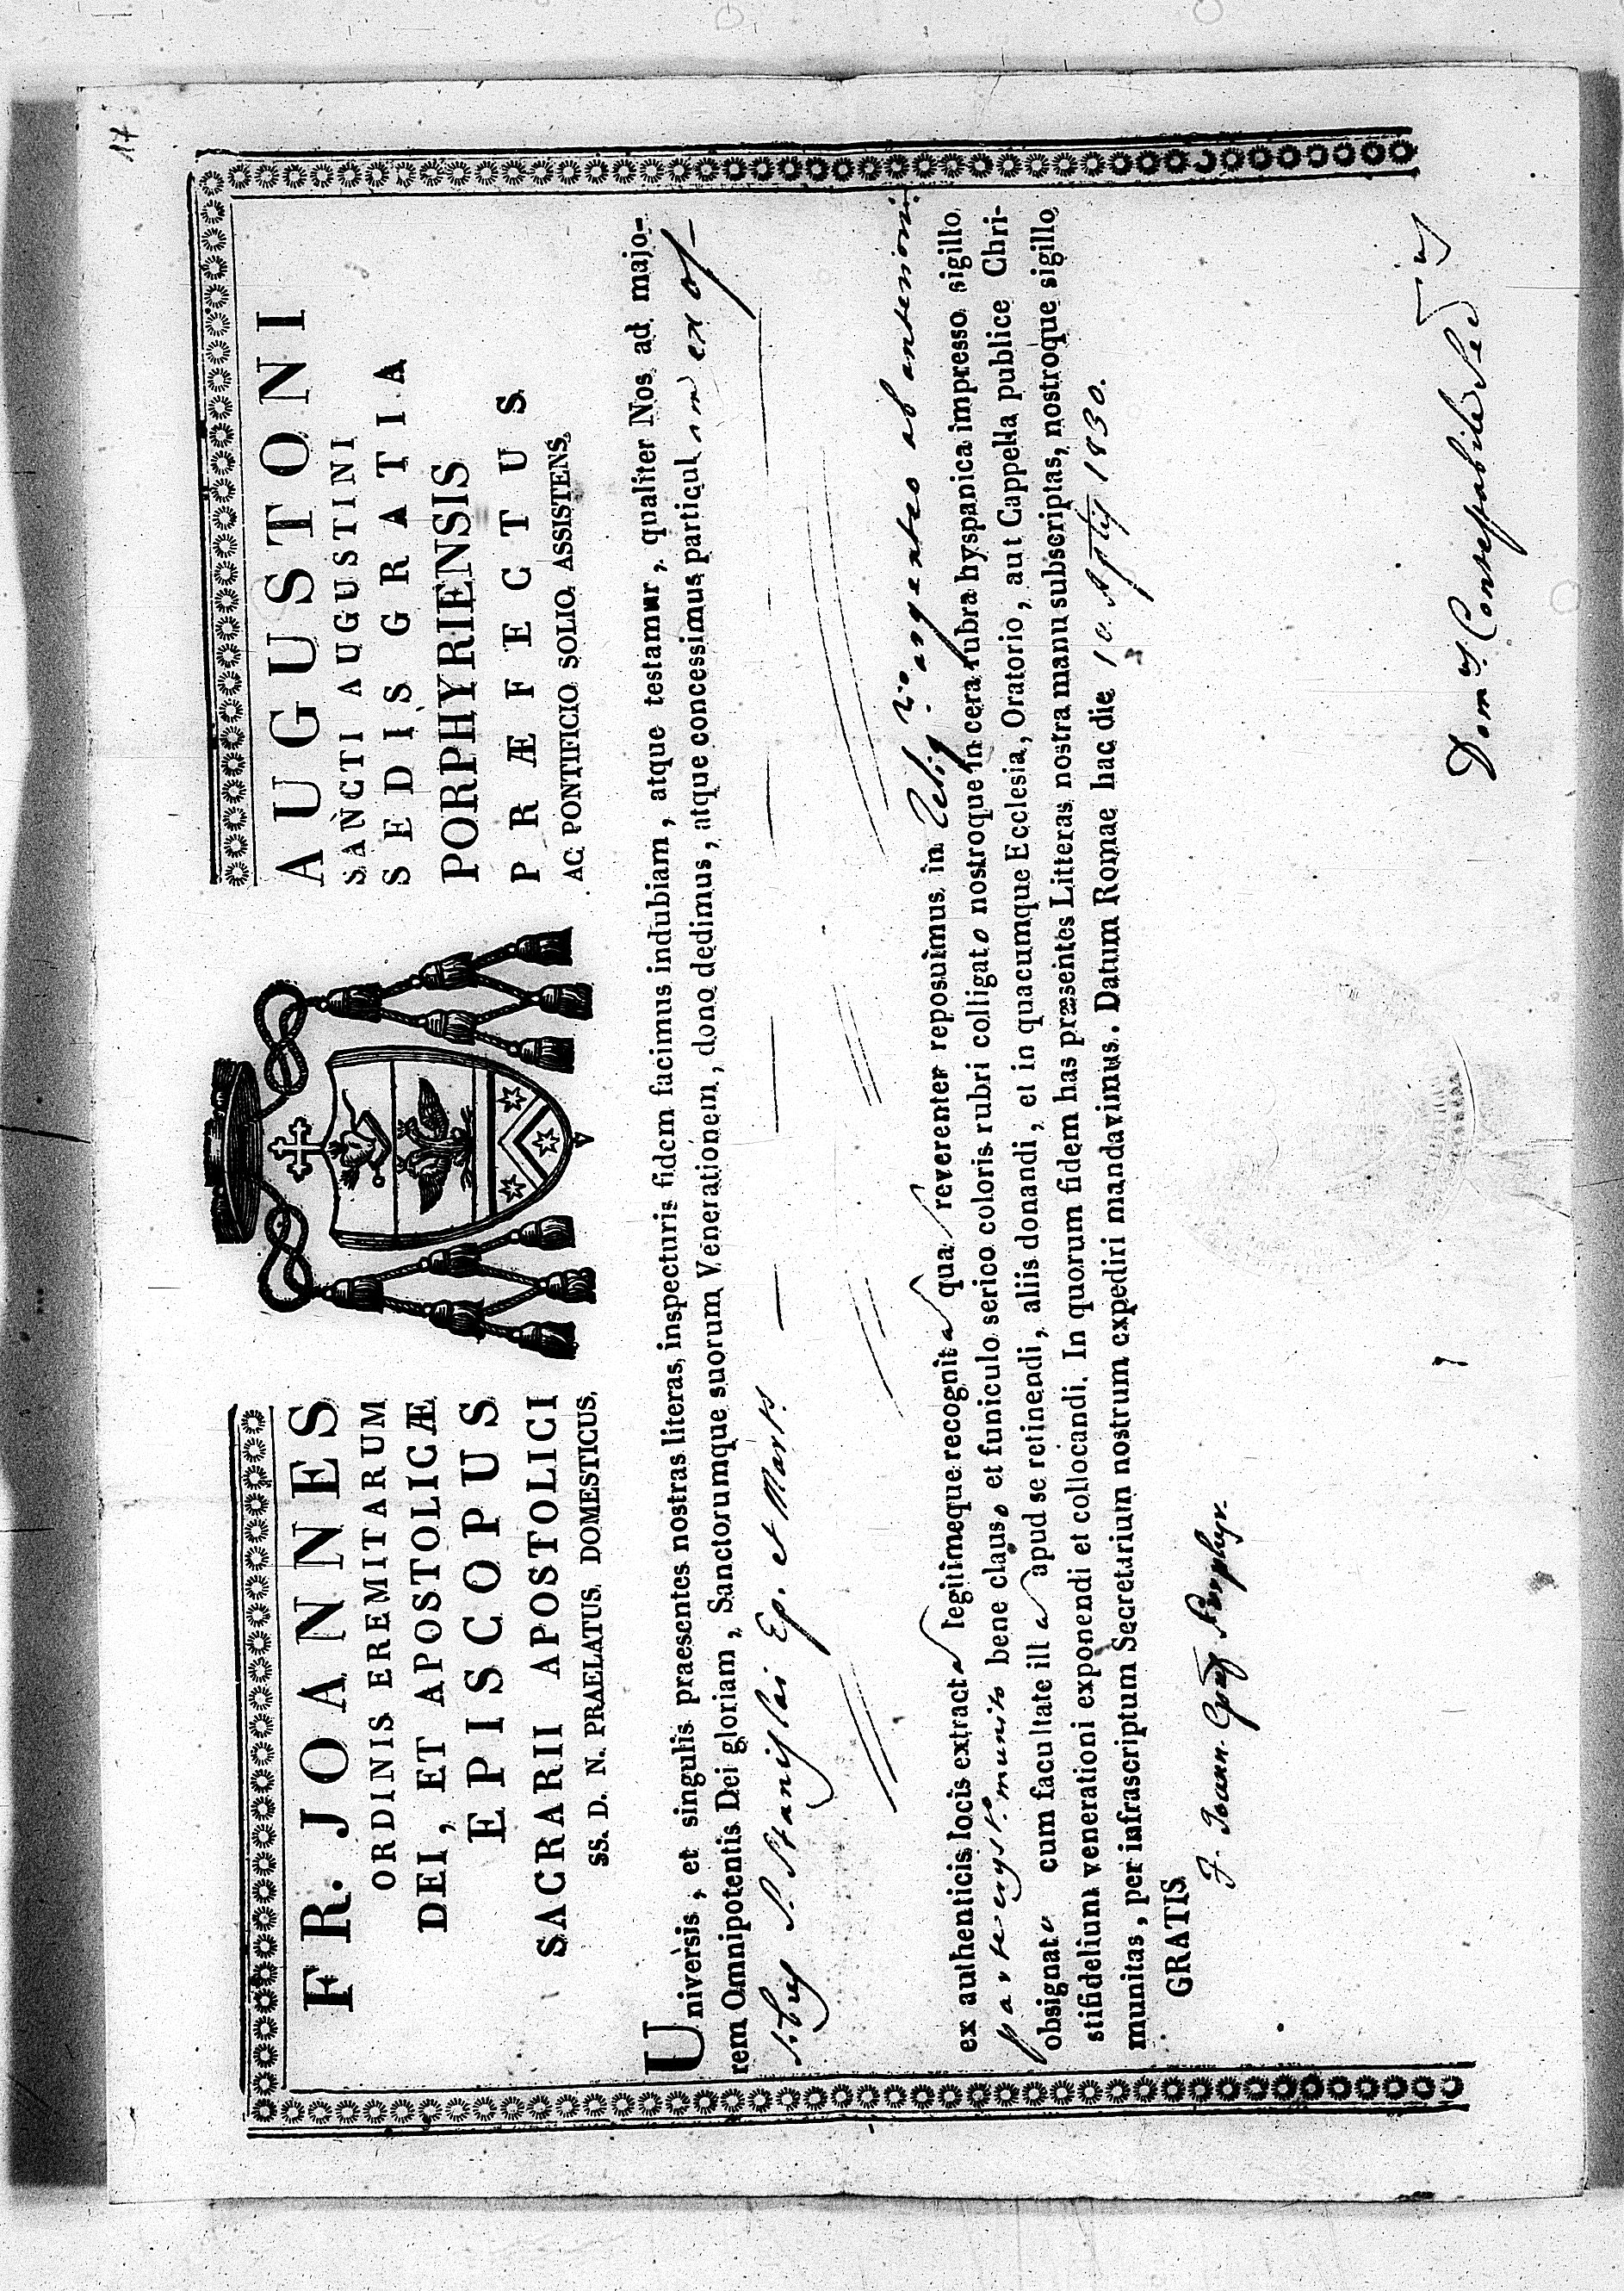 17
FR. JOANNES AUGUSTONI
ORDINIS EREMITARUM SANCTI AUGUSTINI
DEI, ET APOSTOLICÆ SEDIS GRATIA
EPISCOPUS PORPHYRIENSIS
SACRARII APOSTOLICI PRÆFECTUS
SS. D. N. PRAELATUS DOMESTICUS AC PONTIFICIO SOLIO ASSISTENS
Universis, et singulis praesentes nostras literas inspecturis fidem facimus indubiam, atque testamur, qualiter Nos ad majo-
rem Omnipotentis Dei gloriam, Sanctorumque suorum Venerationem, dono dedimus, atque concessimus particulam ex os-
sibus S. Stanislai Ep. et Mart.
ex authenticis locis extracta legitimeque recognita qua reverenter reposuimus in argenteo ab anteriori
parte munito bene clauso et funiculo serico coloris rubri colligato nostroque in cera rubra hyspanica impresso sigillo
obsignato cum facultate illa apud se retinendi, aliis donandi, et in quacumque Ecclesia, Oratorio, aut Cappella publice Chri-
stifidelium venerationi exponendi et collocandi. In quorum fidem has præsentes Litteras nostra manu subscriptas, nostroque sigillo
munitas, per infrascriptum Secretarium nostrum expediri mandavimus. Datum Romae hac die 10. 1830.
GRATIS
F. Joann. Porphyr.